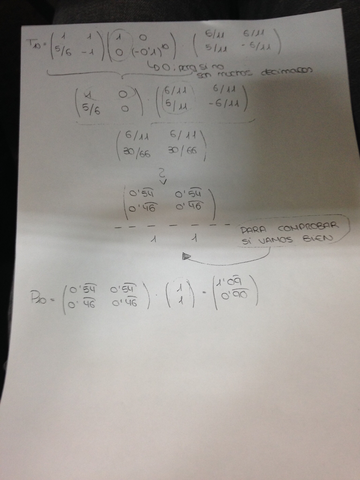 T₁₀ = ( 1 1 ) ( 1 0 ) ( 6/11 6/11 )
( 5/6 -1 ) ( 0 (-0'1)¹⁰ ) ( 5/11 -6/11 )
↳ 0. para si no
son muchos decimales
( 1 0 ) ( 6/11 6/11 )
( 5/6 0 ) ( 5/11 -6/11 )
( 6/11 6/11 )
( 30/66 30/66 )
( 0'54 0'54 )
( 0'46 0'46 )
1 1
PARA COMPROBAR
SI VAMOS BIEN
P₁₀ = ( 0'54 0'54 ) · ( 1 ) = ( 1'09 )
( 0'46 0'46 ) ( 1 ) ( 0'90 )